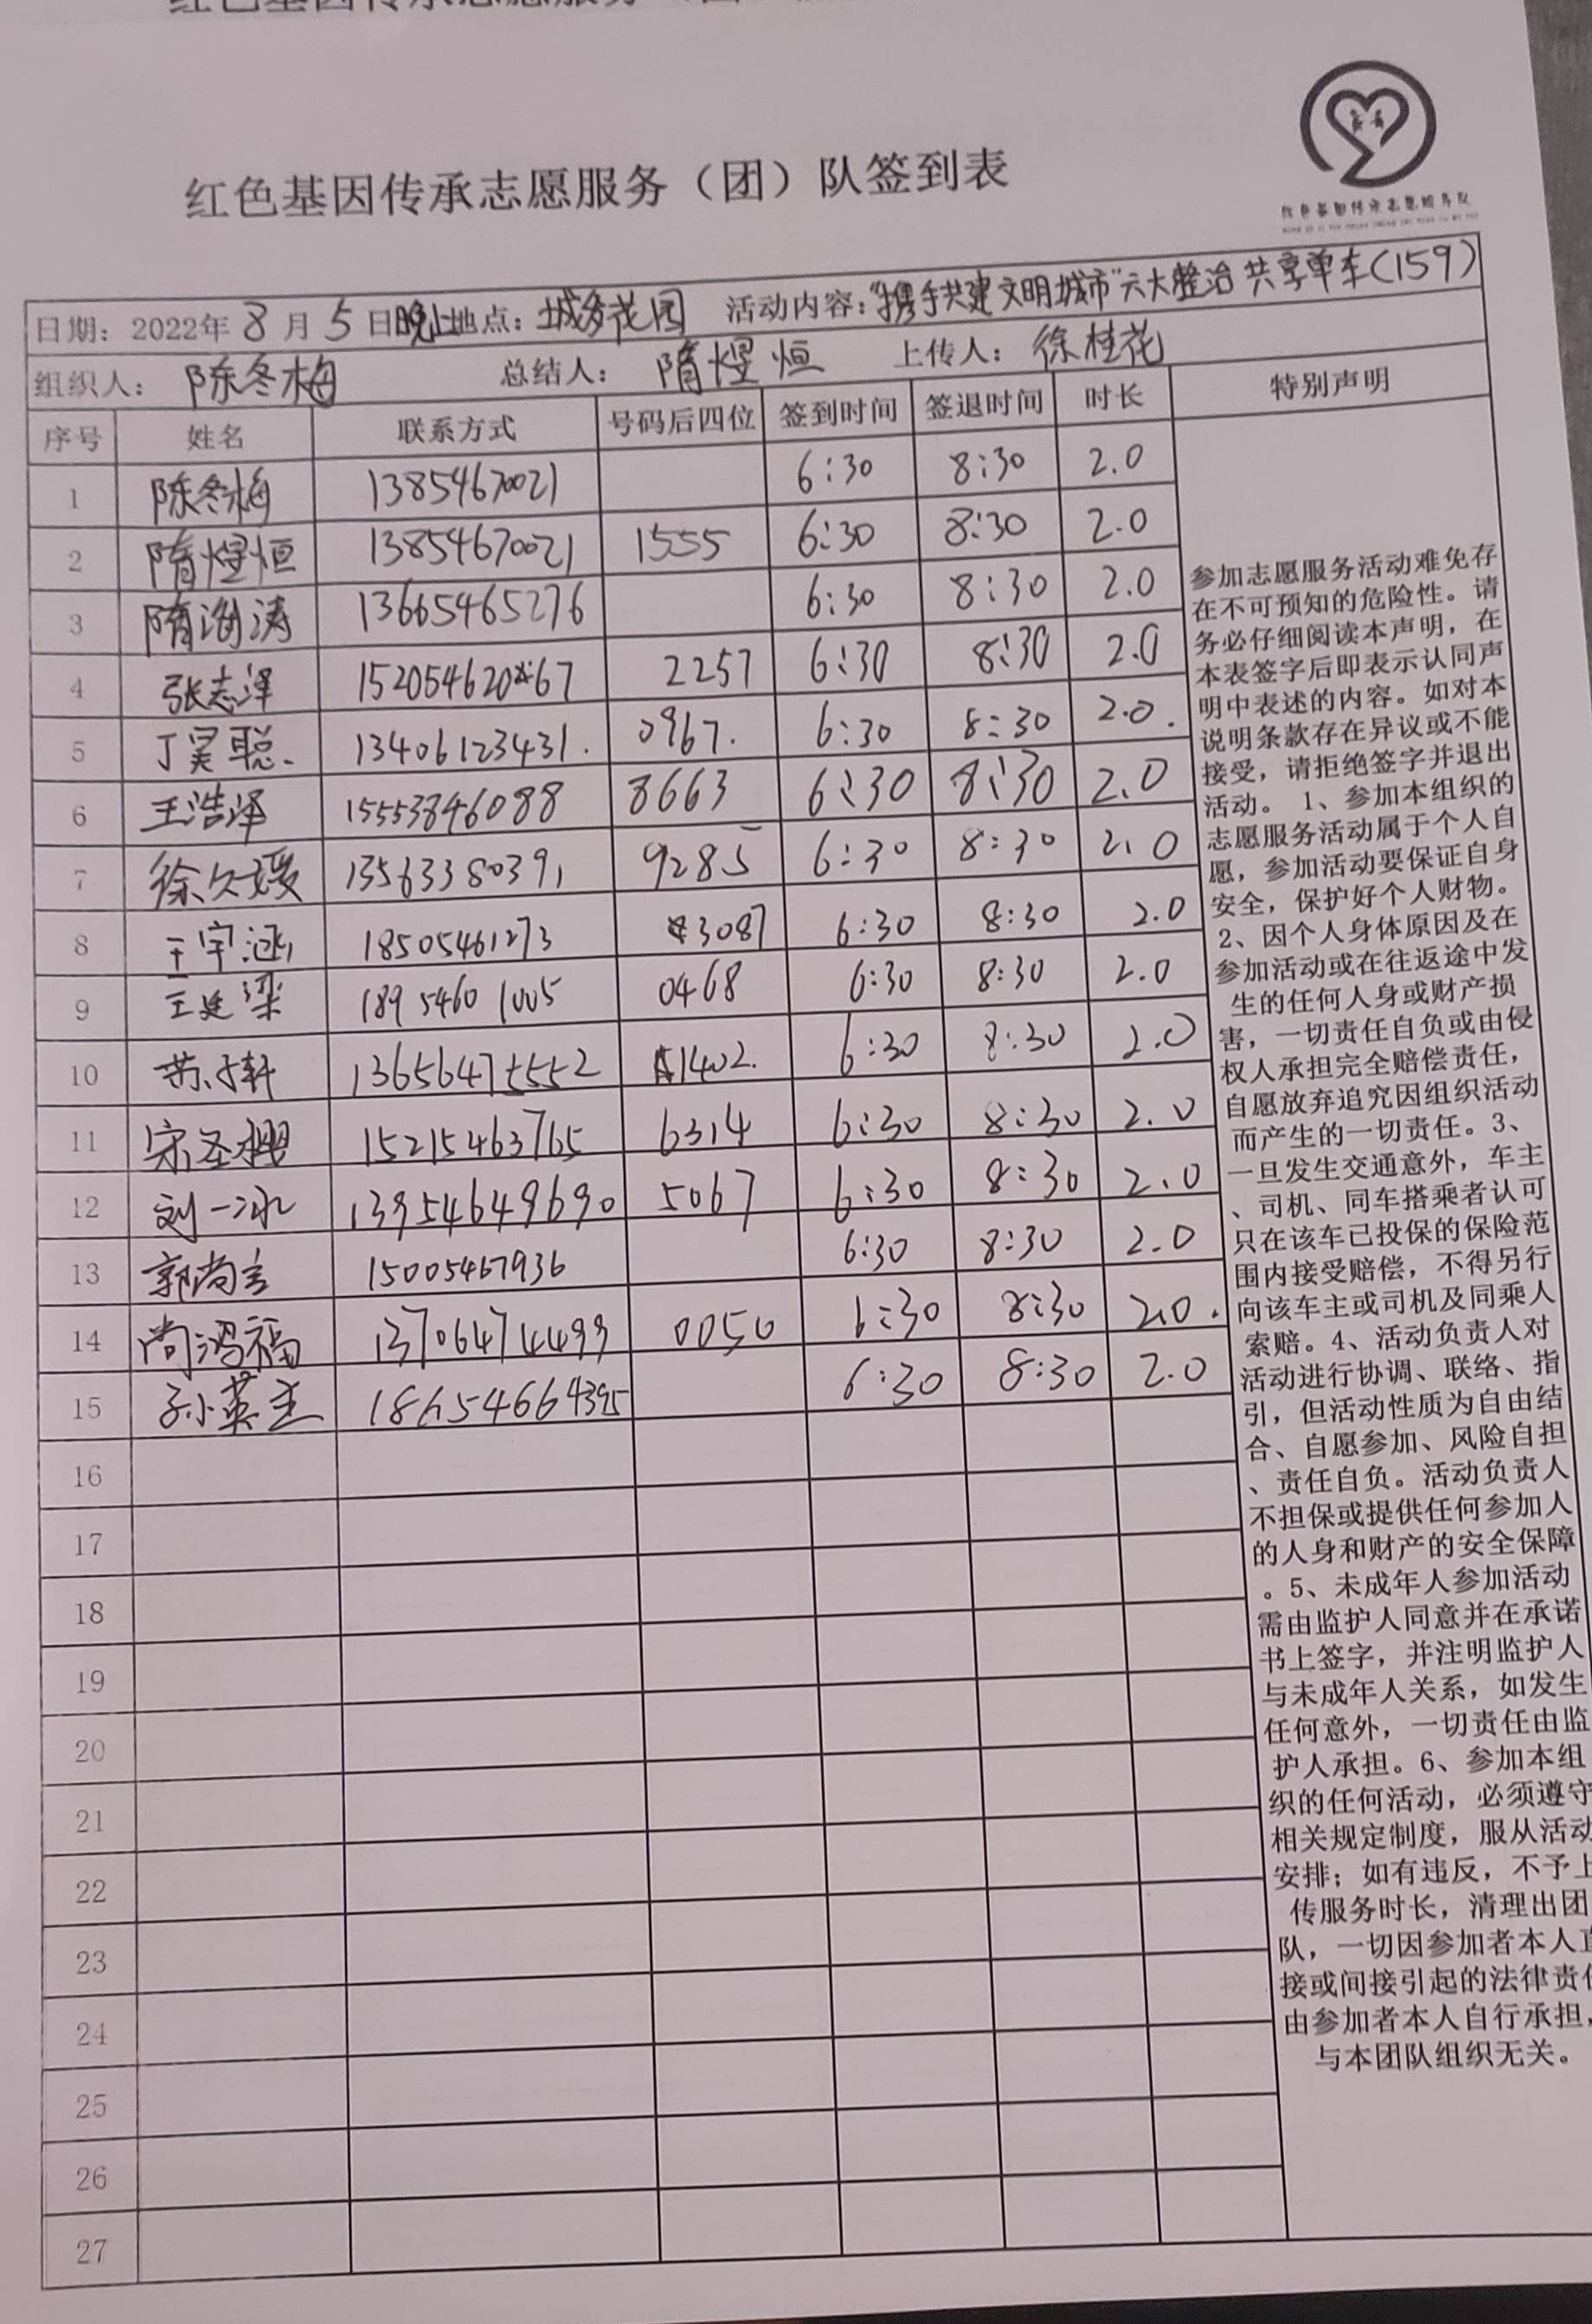 红色基因传承志愿服务（团）队签到表
红色基因传承志愿服务队
日期：2022年8月5日晚上地点：城乡花园 活动内容："携手共建文明城市"六大整治共享单车(159)
组织人：陈冬梅 总结人：隋煜恒 上传人：徐桂花
序号 姓名 联系方式 号码后四位 签到时间 签退时间 时长 特别声明
1 陈冬梅 13854670021 6:30 8:30 2.0
2 隋煜恒 13854670021 1555 6:30 8:30 2.0
3 隋海涛 13665465276 6:30 8:30 2.0
4 张志泽 15205462067 2257 6:30 8:30 2.0
5 丁昊聪. 13406123431. 0967. 6:30 8:30 2.0.
6 王浩泽 15553846088 8663 6:30 8:30 2.0
7 徐久媛 13563380391 9285 6:30 8:30 2.0
8 王宇涵 18505461273 3087 6:30 8:30 2.0
9 王廷梁 18954601005 0468 6:30 8:30 2.0
10 13656475552 1402. 6:30 8:30 2.0
11 宋圣樱 15215463765 6314 6:30 8:30 2.0
12 刘一冰 13954649690 5067 6:30 8:30 2.0
13 郭尚 15005467936 6:30 8:30 2.0
14 尚鸿福 13706474499 0050 6:30 8:30 2.0.
15 孙英 18654664395 6:30 8:30 2.0
16
17
18
19
20
21
22
23
24
25
26
27
参加志愿服务活动难免存
在不可预知的危险性。请
务必仔细阅读本声明，在
本表签字后即表示认同声
明中表述的内容。如对本
说明条款存在异议或不能
接受，请拒绝签字并退出
活动。 1、参加本组织的
志愿服务活动属于个人自
愿，参加活动要保证自身
安全，保护好个人财物。
2、因个人身体原因及在
参加活动或在往返途中发
生的任何人身或财产损
害，一切责任自负或由侵
权人承担完全赔偿责任，
自愿放弃追究因组织活动
而产生的一切责任。3、
一旦发生交通意外，车主
、司机、同车搭乘者认可
只在该车已投保的保险范
围内接受赔偿，不得另行
向该车主或司机及同乘人
索赔。4、活动负责人对
活动进行协调、联络、指
引，但活动性质为自由结
合、自愿参加、风险自担
、责任自负。活动负责人
不担保或提供任何参加人
的人身和财产的安全保障
。5、未成年人参加活动
需由监护人同意并在承诺
书上签字，并注明监护人
与未成年人关系，如发生
任何意外，一切责任由监
护人承担。6、参加本组
织的任何活动，必须遵守
相关规定制度，服从活动
安排；如有违反，不予上
传服务时长，清理出团
队，一切因参加者本人直
接或间接引起的法律责任
由参加者本人自行承担，
与本团队组织无关。